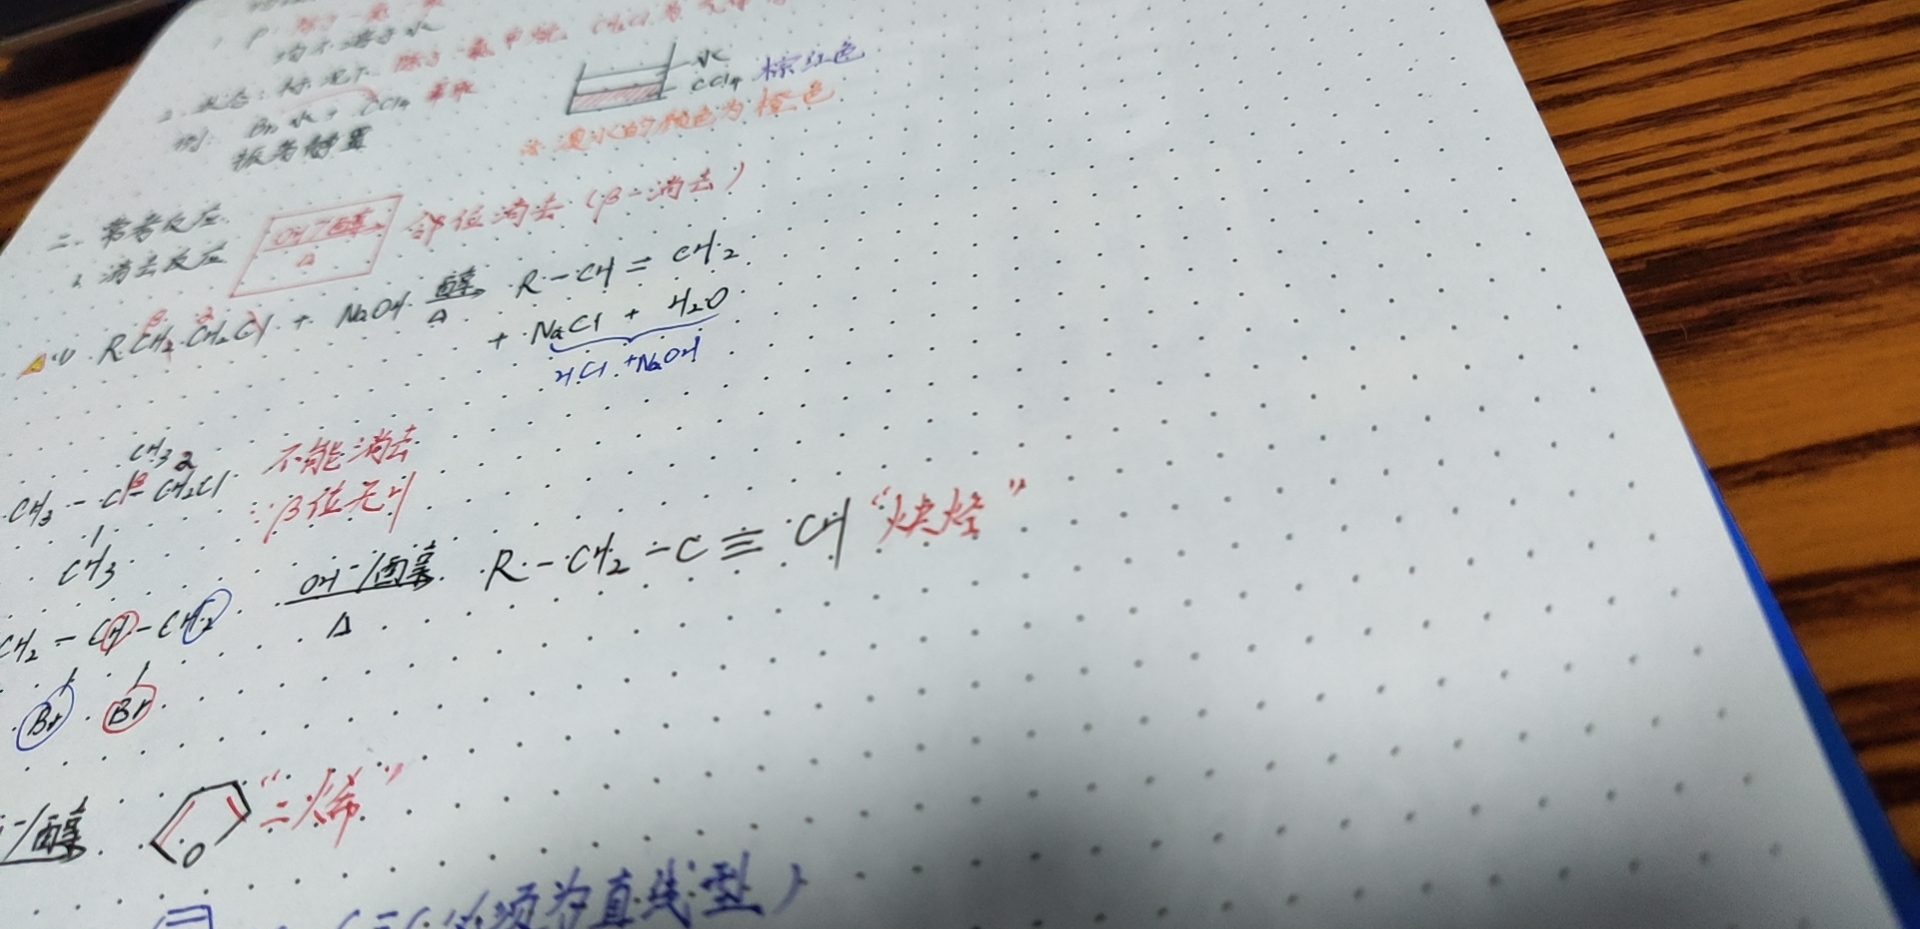 均不溶于水
2. 状态: 标况下 除了一氯甲烷
例: Br₂水+CCl₄ 萃取
振荡静置
水
CCl₄ 棕红色
溴水的颜色为橙色
二. 常考反应
1. 消去反应 OH⁻/醇 △ 邻位消去 (β-消去)
(1) RCH₂CH₂Cl + NaOH 醇 △ R-CH=CH₂
β α
+ NaCl + H₂O
HCl + NaOH
CH₃ α
CH₃-C-CH₂Cl 不能消去
β
∵β位无H
CH₃
CH₂-CH-CH₂ OH⁻/醇 △ R-CH₂-C≡CH "炔烃"
Br Br
/醇 O "二烯"
必须为直线型)